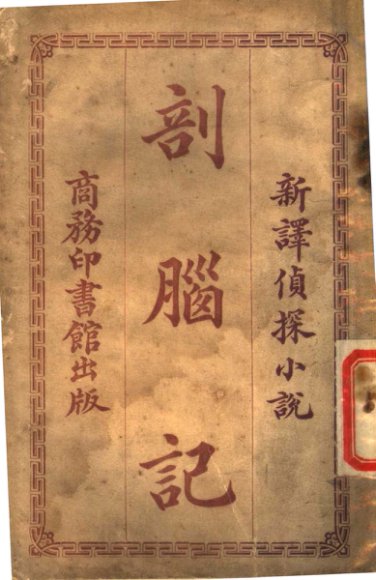 新譯偵探小說
剖腦記
商務印書館出版